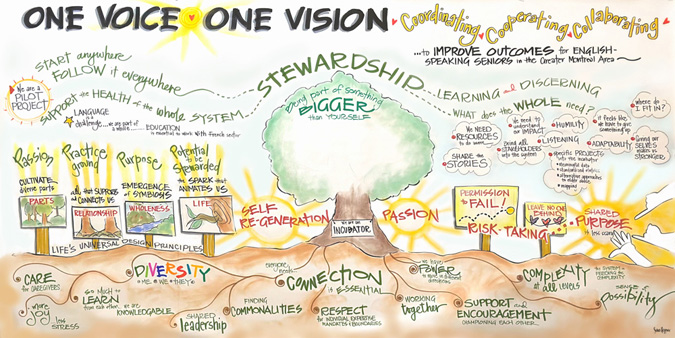 ONE VOICE ONE VISION
Coordinating Cooperating Collaborating
...to IMPROVE OUTCOMES for ENGLISH-
SPEAKING SENIORS in the Greater Montreal Area
START anywhere
FOLLOW it everywhere
We are a
PILOT
PROJECT
SUPPORT the HEALTH of the whole SYSTEM
LANGUAGE
is a
challenge... we are part of
a whole
EDUCATION
is essential to work with French sector
STEWARDSHIP
being part of something
BIGGER
than YOURSELF
LEARNING and DISCERNING
WHAT does the WHOLE need?
where do
I FIT IN?
We NEED
RESOURCES
to do more...
we need to
understand
our IMPACT
HUMILITY
it feels like
we have to give
something up
SHARE the
STORIES
BRING all
STAKEHOLDERS
into the system
LISTENING
ADAPTABILITY
giving our
SELVES
makes us
STRONGER
specific projects
Passion
Practice
giving
Purpose
Potential
to be
Stewarded
CULTIVATE
diverse parts
all that SUPPORTS
and CONNECTS US
EMERGENCE
of SYMBIOSIS
the SPARK that
ANIMATES US
PARTS
RELATIONSHIP
WHOLENESS
LIFE
LIFE'S UNIVERSAL DESIGN PRINCIPLES
SELF
RE-GENERATION
WE ARE AN
INCUBATOR
PASSION
PERMISSION
to FAIL!
RISK-TAKING
LEAVE NO ONE
BEHIND
SHARED
PURPOSE
CARE
for CAREGIVERS
DIVERSITY
ME WE THEY
everyone
needs
CONNECTION
IS ESSENTIAL
we have
POWER
COMPLEXITY
at all LEVELS
SENSE of
possibility
more
JOY
less
STRESS
SO MUCH to
LEARN
from each other
we are
KNOWLEDGEABLE
SHARED
leadership
FINDING
COMMONALITIES
RESPECT
for INDIVIDUAL EXPERTISE,
MANDATES & BOUNDARIES
WORKING
together
SUPPORT and
ENCOURAGEMENT
CHAMPIONING EACH OTHER...